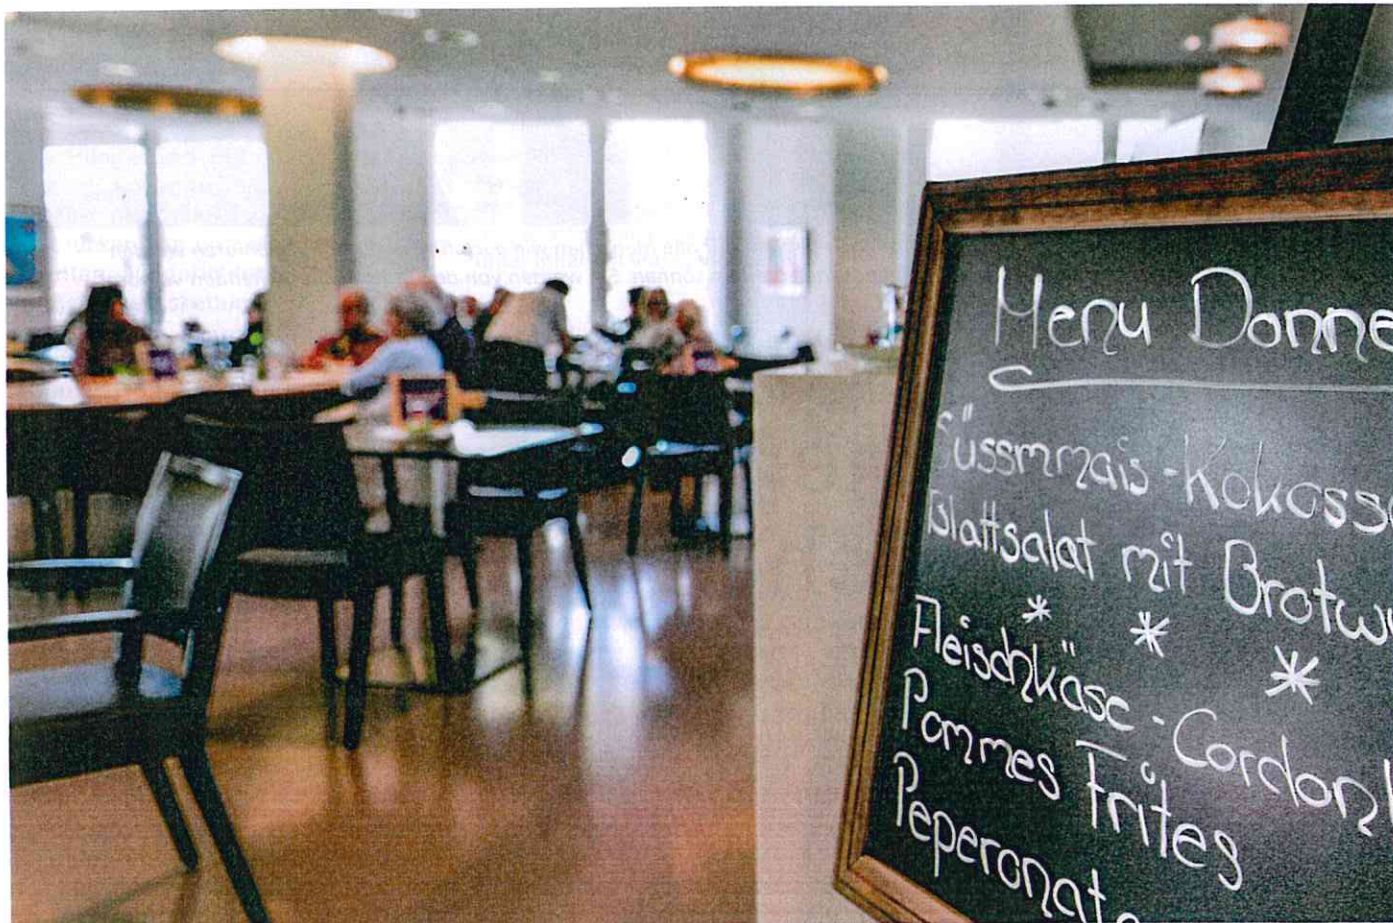 Menu Donne
Süssmmais-Kokoss
Blattsalat mit Brotw
* * *
Fleischkäse-Cordon
Pommes Frites
Peperonat